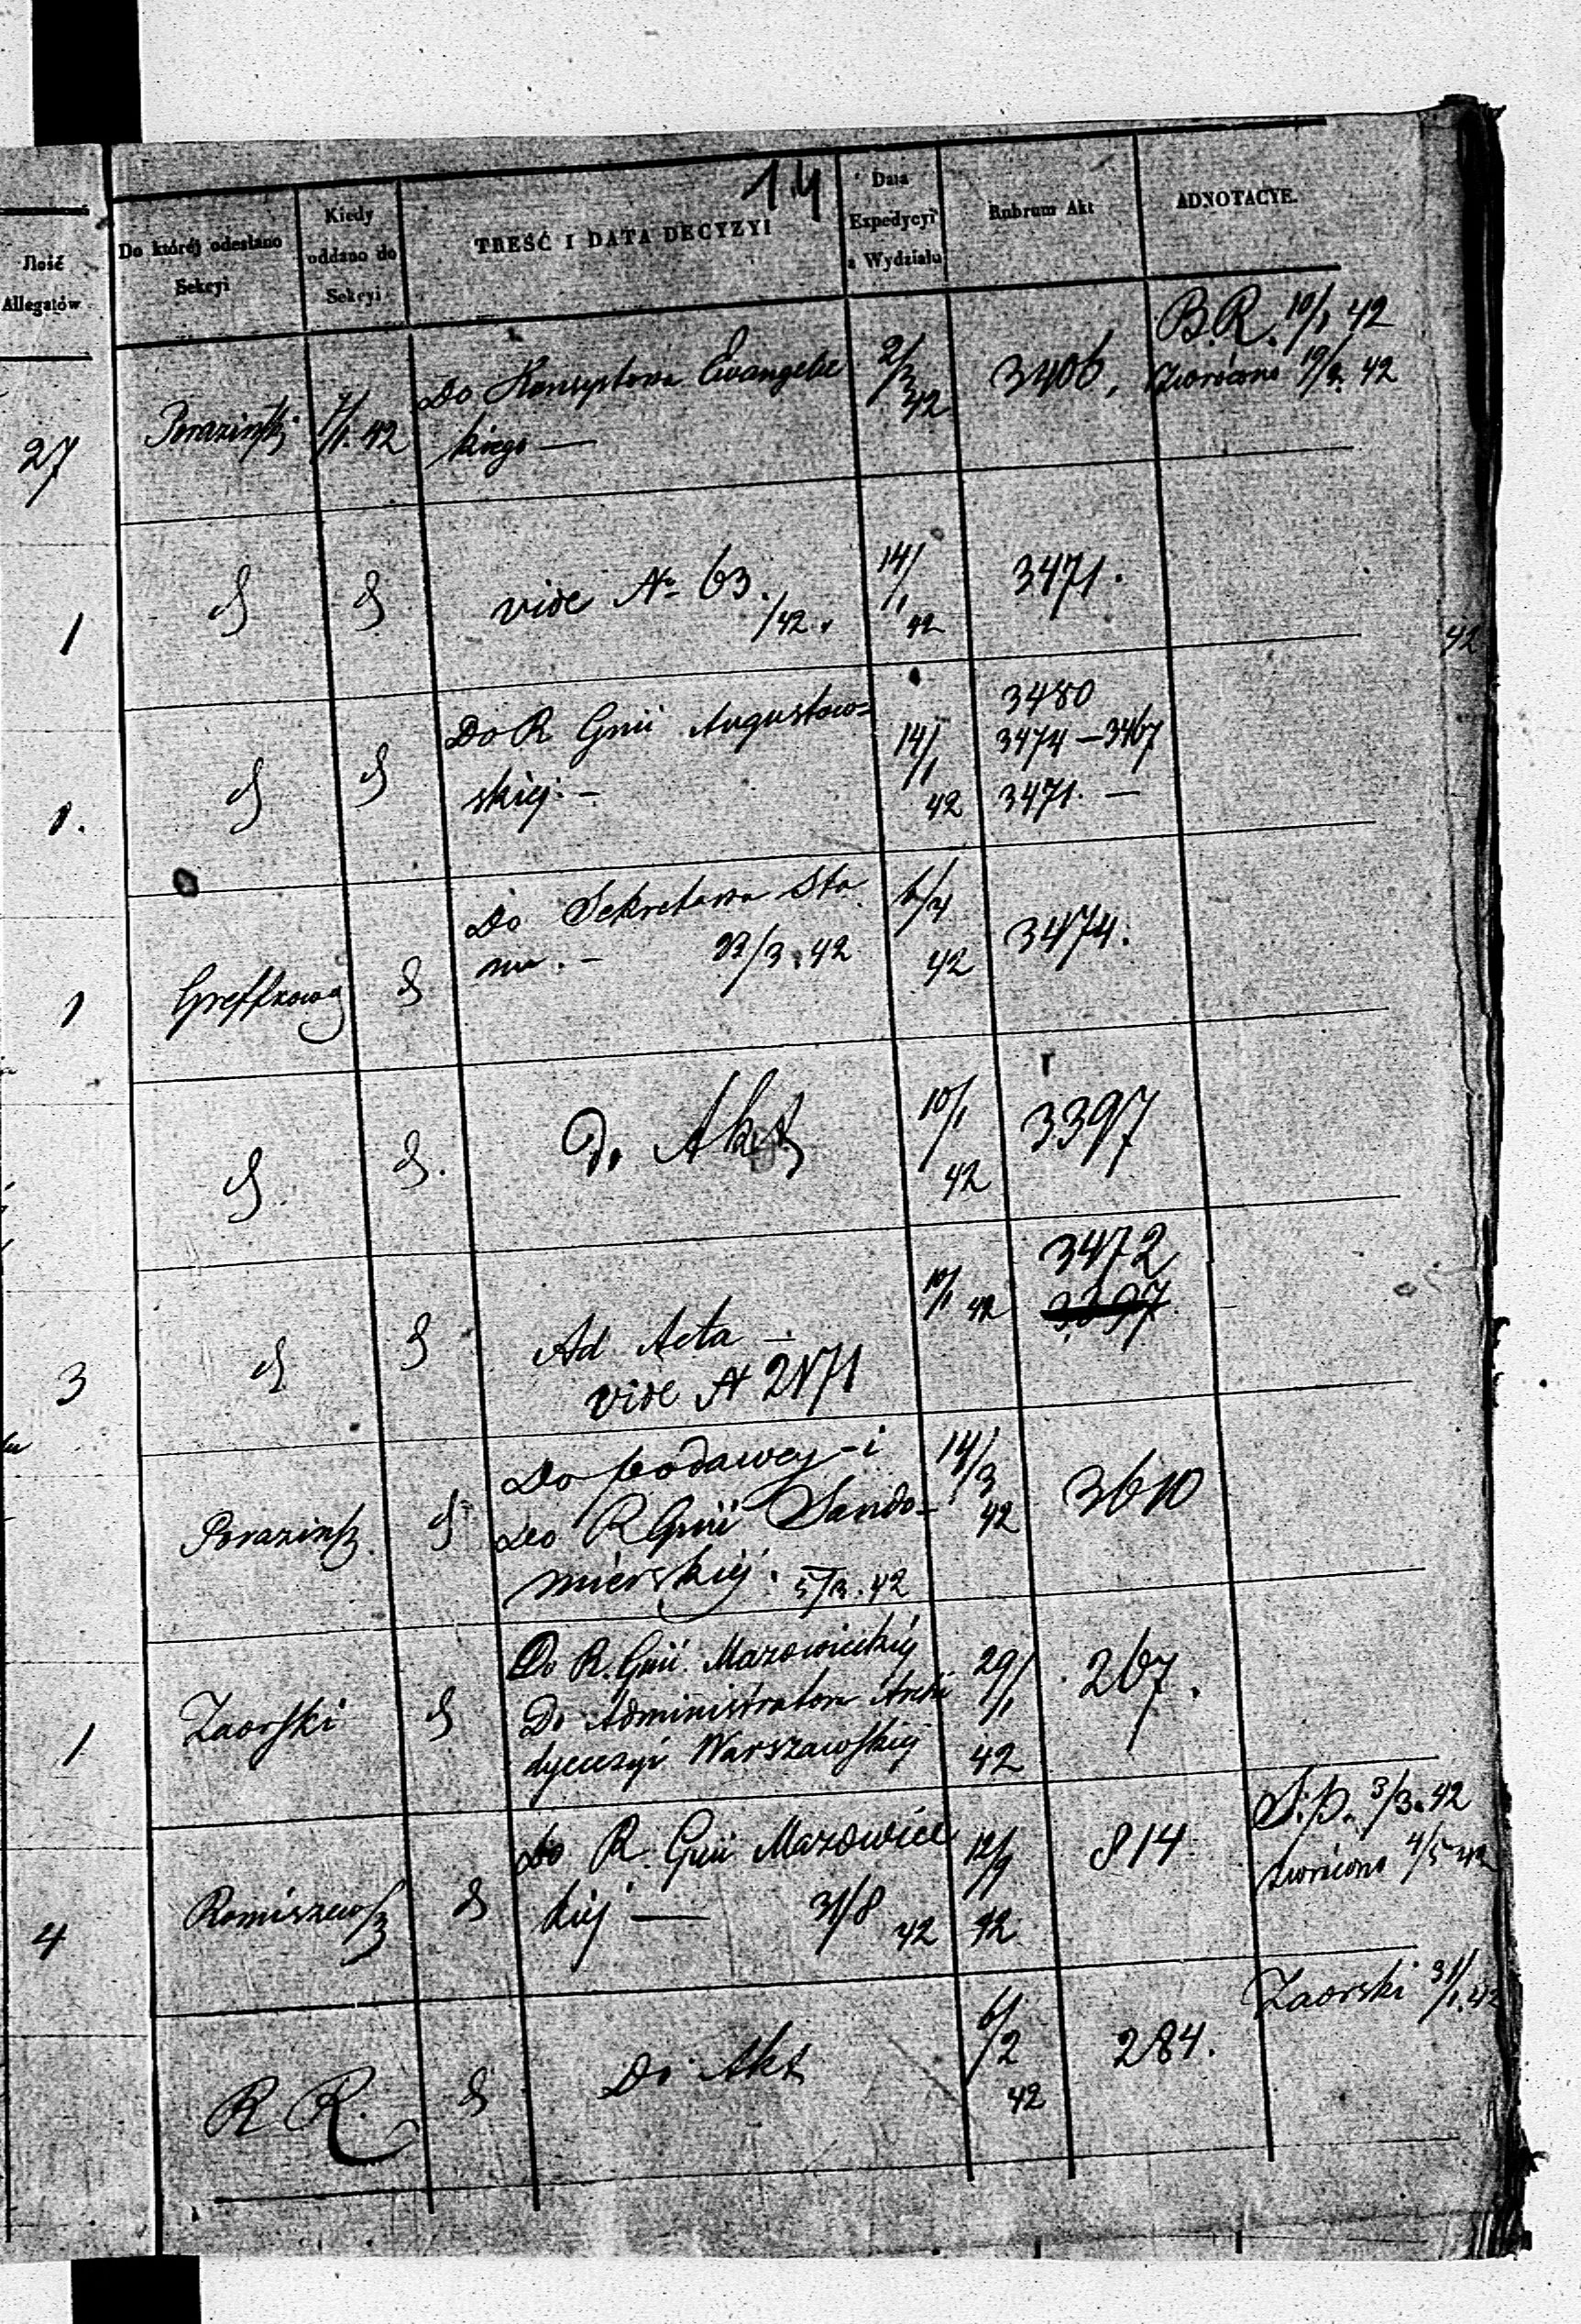 14
Ilość
Allegatów
Do której odesłano
Sekcyi
Kiedy
oddano do
Sekcyi
TREŚĆ I DATA DECYZYI
Data
Expedycyi
z Wydziału
Rubrum Akt
ADNOTACYE.
27
Poraziński
7/1. 42
Do Konsystorza Evangelic
kiego —
2/3 42
3406.
B.R. 10/1 42
zwrócono 19/2. 42
1
vide No 63.
/42.
14/1 42
3471.
42
1.
Do R Gnii Augustow=
skiej. —
14/1 42
3480
3474 — 3467
3471. —
1
Do Sekretarza Sta
nu. — 22/3. 42
6/4 42
3474.
Do Akt
10/1 42
3397
3
Ad Acta —
vide N 2171
10/1 42
3472
3397
Porazińs
Do podawcy - i
Do R Gnii Sando-
mierskiej. 5/3. 42
14/3 42
3610
1
Zaorski
Do R. Gnii. Mazowieckiej
Do Administratora Archi
dyecezyi Warszawskiej
29/1 42
267.
4
Romiszews
Do R. Gnii Mazowiec
kiej — 31/8 42
12/9 42
814
S.p. 3/3. 42
zwrócono 4/5 42
R R.
Do Akt
6/2 42
284.
Zaorski 31/1. 42